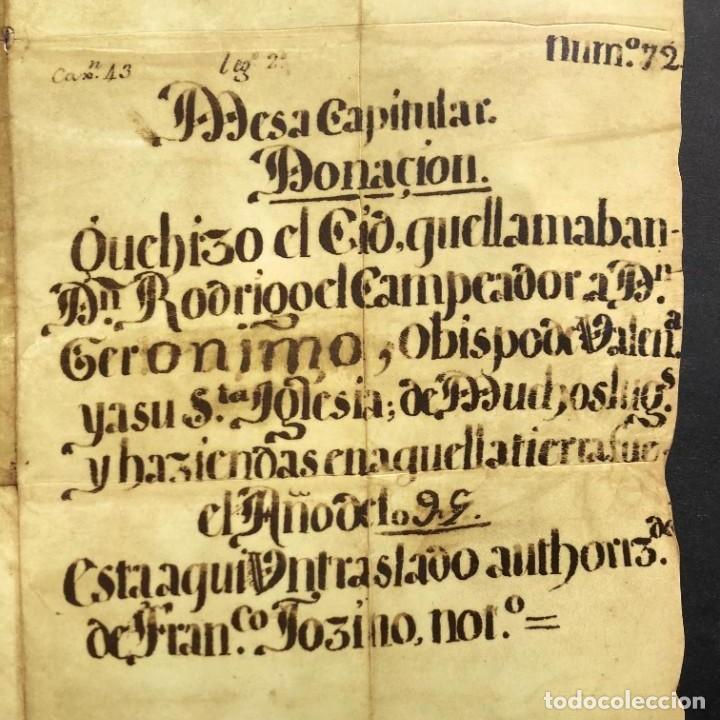 Caxⁿ. 43 legº. 2º. Numº. 72
Mesa Capitular.
Donaçion.
Que hizo el Cid, que llamaban
Dⁿ. Rodrigo el Campeador a Dⁿ.
Geronimo, Obispo de Valenª.
y a su Sᵗᵃ. Iglesia; de Muchos lugˢ.
y haziendas en aquella tierra fue
el Año de
esta aqui Vn traslado authorizᵈᵒ.
de Franᶜᵒ. Tozino, notº. =
todocoleccion
todocoleccion.net